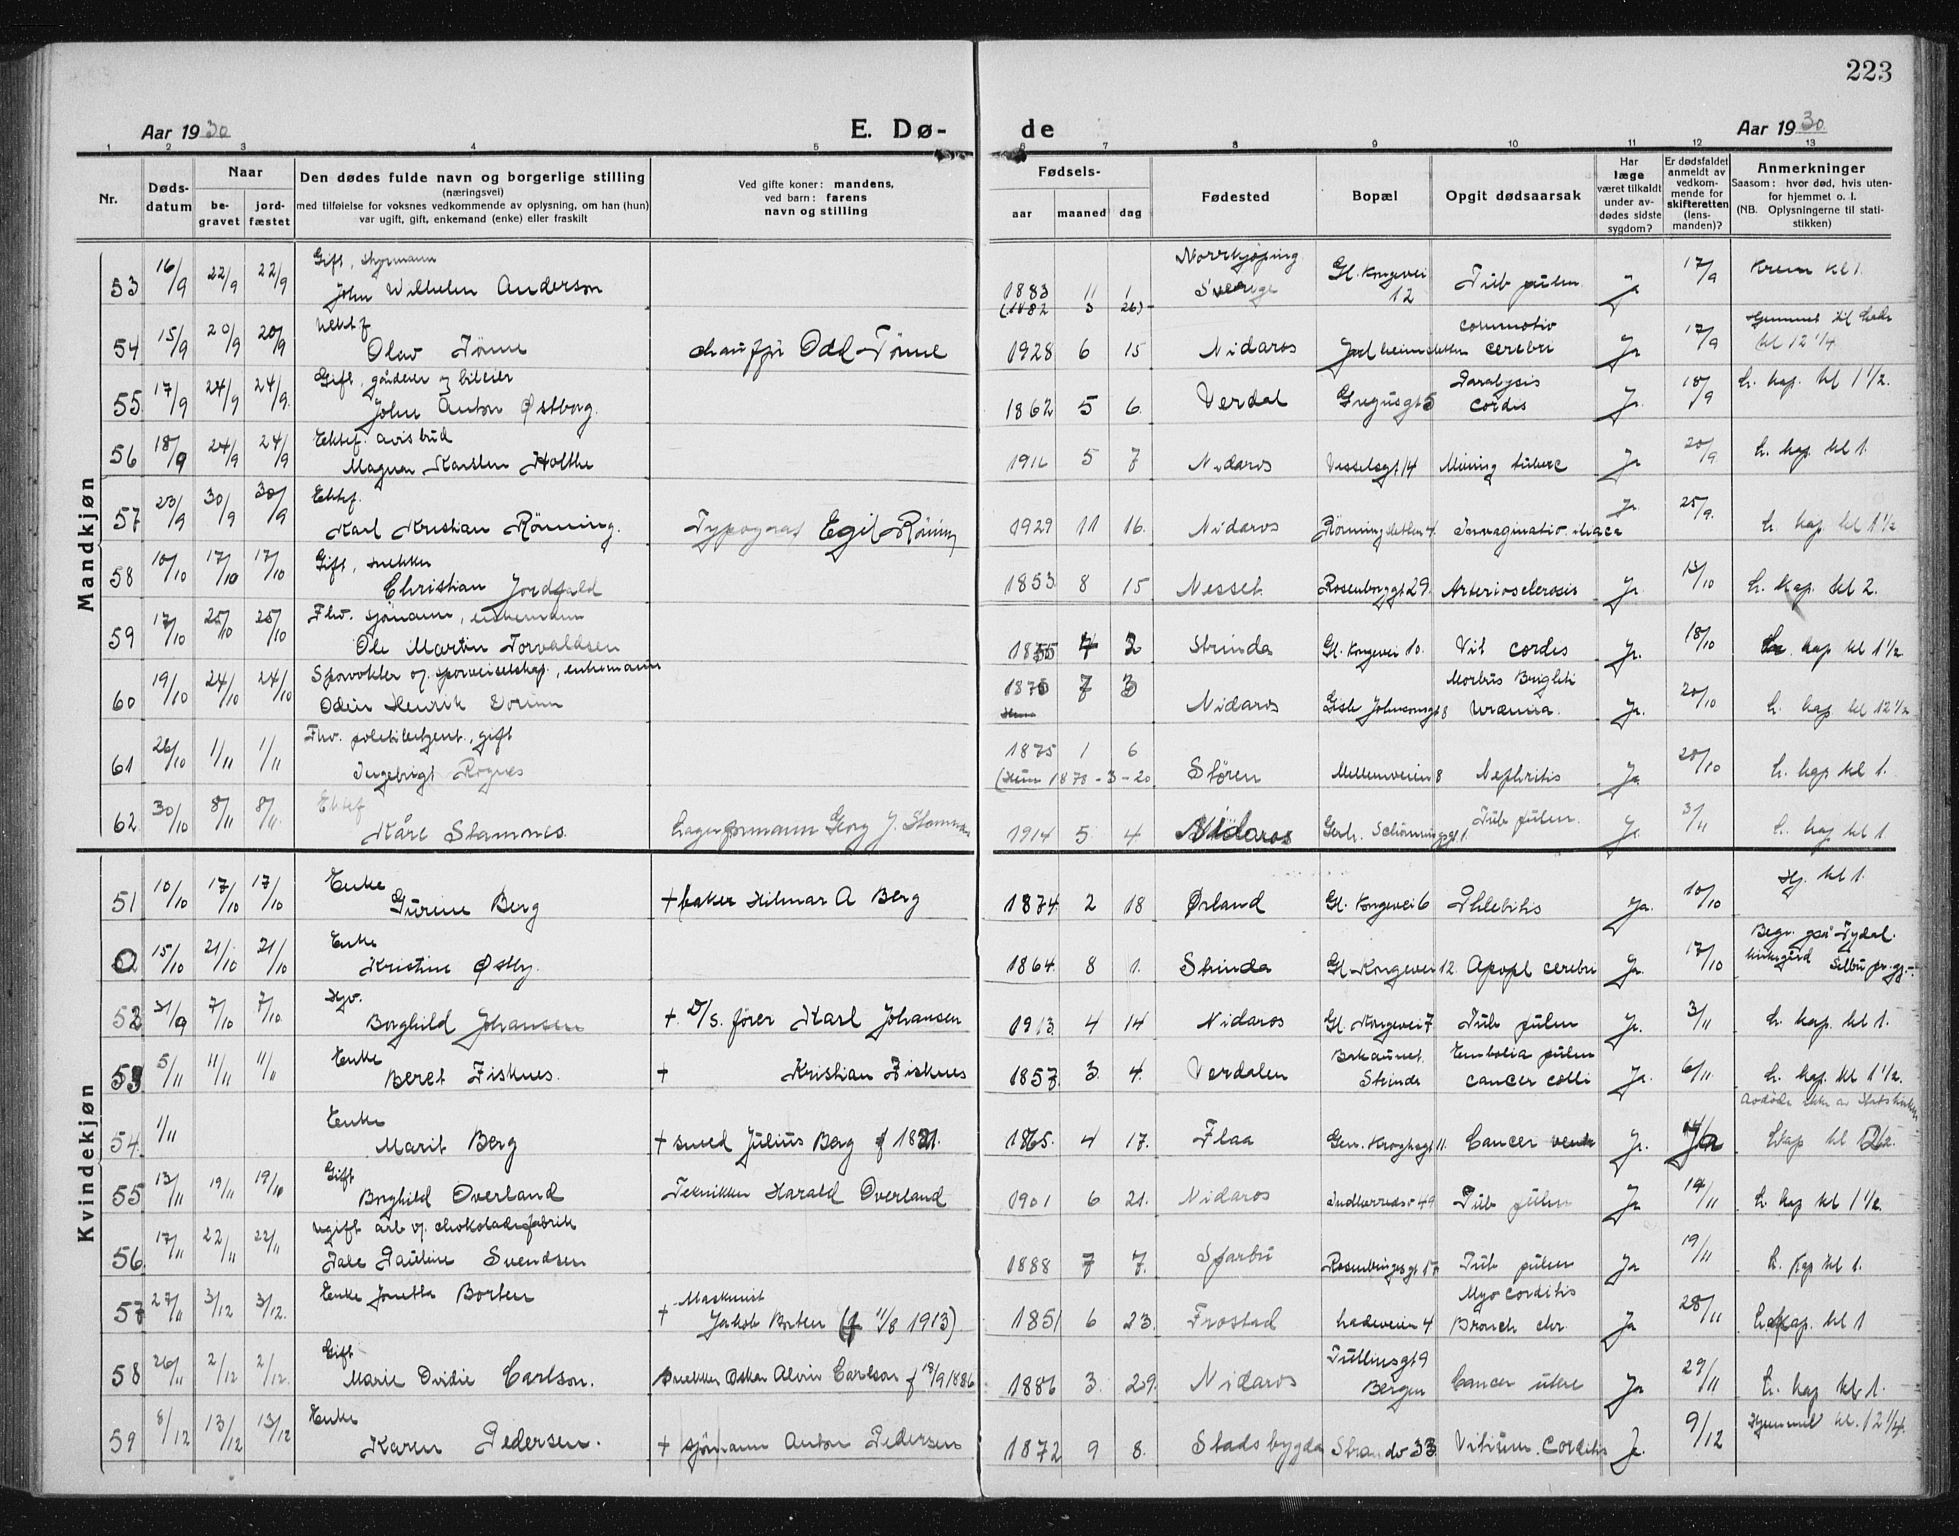 223
Aar 1930
E. Dø-
de
Aar 1930
1 2 3 4 5 6 7 8 9 10 11 12 13
Nr.
Døds-
datum
Naar
be-
gravet
jord-
fæstet
Den dødes fulde navn og borgerlige stilling
(næringsvei)
med tilføielse for voksnes vedkommende av oplysning, om han (hun)
var ugift, gift, enkemand (enke) eller fraskilt
Ved gifte koner: mandens,
ved barn: farens
navn og stilling
Fødsels-
aar maaned dag
Fødested
Bopæl
Opgit dødsaarsak
Har
læge
været tilkaldt
under av-
dødes sidste
sygdom?
Er dødsfaldet
anmeldt av
vedkom-
mende for
skifteretten
(lens-
manden)?
Anmerkninger
Saasom: hvor død, hvis uten-
for hjemmet o. l.
(NB. Oplysningerne til stati-
stikken)
Mandkjøn
Gift, styrmann Norrkjøping Gl. Kongevei
53 16/9 22/9 22/9 John Wilhelm Anderson 1883 11 1 Sverige 12 Tub pulm Ja 17/9 Krem kl 1.
(1882 3 26)
Ektef commotio
54 15/9 20/9 20/9 Olav Tønne chauffør Odd Tønne 1928 6 15 Nidaros cerebri Ja 17/9 kl 12 1/4
Gift, gårdeier og bileier Paralysis
55 17/9 24/9 24/9 John Anton Østborg. 1862 5 6. Verdal cordis Ja 18/9 L. kap. kl 1 1/2.
Ektef. avisbud
56 18/9 24/9 24/9 Magnar Karsten Holthe 5 7 Nidaros Vesselsgt 14 Mening tuberc Ja 20/9 L. kap kl 1.
Ektef.
57 23/9 30/9 30/9 Karl Kristian Rönning. Typograf Egil Röning 1929 11 16. Nidaros Rönningsletten 4. Invaginatio iliaca Ja. 25/9. L. kap kl 1 1/2
Gift, snekker
58 10/10 17/10 17/10 Christian Jordfald 1853 8 15 Nesset Rosenborggt 29. Arteriosclerosis Ja. 13/10 L. kap. kl 2.
Fhv. sjömann, enkemann
59 17/10 25/10 25/10 Ole Martin Torvaldsen 1855 4 2 Strinda Gl. Kongevei 10. Vit cordis Ja. 18/10 L. kap kl 1 1/2
Sporvokter og sporveiselskap, enkemann Morbus Brighti
60 19/10 24/10 24/10 Odin Henrik 1870 7 3 Nidaros Gisle Johnsonsgt 8 Uræmia. Ja. 20/10 L. kap kl 12 1/2
Fhv. politibetjent, gift
61 26/10 1/11 1/11 Ingebrigt Rognes 1875 1 6 Stören Mellemveien 8 Nephritis Ja 28/10 L. kap kl 1.
1878-3-20.
Ektef
62 30/10 8/11 8/11. Kåre Stamnes Lagerformann Georg J. Stamnes 1914 5 4. Nidaros Gerh. Schönningsgt 1. Tub pulm. Ja 3/11 L. kap kl 1
Kvindekjøn
Enke Hj. kl 1.
51 10/10 17/10 17/10 Gurine Berg + baker Hilmar A Berg 1874. 2 18 Ørland Gl. Kongevei 6 Phlebitis Ja. 10/10
Enke Begr. på Tydal
0 15/10 21/10 21/10 Kristine Østby. 1864. 8 1. Strinda Gl. Kongevei 12. Apopl cerebri Ja. 17/10 kirkegård Selbu pr.gj.
52 7/10 7/10. Borghild Johansen + D/S. fører Karl Johansen 1913. 4 14 Nidaros Gl. Kongevei 7 Tub pulm Ja. 3/11 L. kap. kl 1.
Enke Bakaunet Embolia pulm
53 5/11 11/11 11/11 Beret Fisknes. + Kristian Fisknes 1857. 3. 4. Verdalen Strinda cancer colli Ja. 6/11 L. kap. kl 1 1/2.
Avdøde ikke av Statskirken
Enke
54. 1/11 Marit Berg + smed Julius Berg 1865. 4 17. Flaa Gen. Kroghsgt 11. Cancer ventr Ja. Ja L kap kl
Gift
55 13/11 19/11 19/10 Borghild Overland Tekniker Harald Overland 1901 6 21. Nidaros Indherredsv 49 Tub pulm Ja 14/11 L. kap kl 1 1/2.
ugift arb v. chokoladefabrik
56. 17/11 22/11 22/11 Pauline Svendsen 1888 7 7. Sparbu Tub pulm Ja 19/11 L. kap kl 1.
Maskinist Myo corditis
57 27/11 3/12 3/12. Enke Jonetta Borten + Jakob Borten (f 11/8 1913). 1851 6 23. Frostad Ladeveien 4 Bronch chr Ja 28/11 L. kap. kl 1
Gift Tullinsgt 9
58 26/11 2/12 2/12. Marie Ovidie Carlson. Snekker Oskar Alvin Carlson f 18/9 1886 1886 3. 29. Nidaros Bergen Cancer uteri Ja 29/11 L. kap kl 1.
Enke
59 8/12 13/12 13/12 Karen Pedersen. + sjömann Anton Pedersen 1872 9 8. Stadsbygda Strandv 33. Vitium. Corditis Ja. 9/12 Hjemmet kl. 12 1/4.